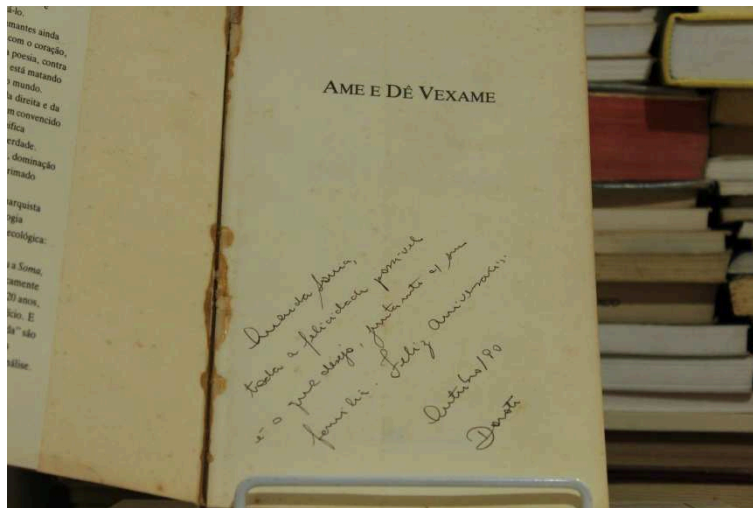 á-lo.
amantes ainda
com o coração,
poesia, contra
está matando
o mundo.
da direita e da
m convencido
nifica
verdade.
, dominação
primado
narquista
ogia
ecológica:
a a Soma,
camente
20 anos,
ício. E
da" são
nálise.
AME E DÊ VEXAME
Querida Sonia,
toda a felicidade possível
é o que desejo, juntamente
família. Feliz aniversário.
Outubro/90